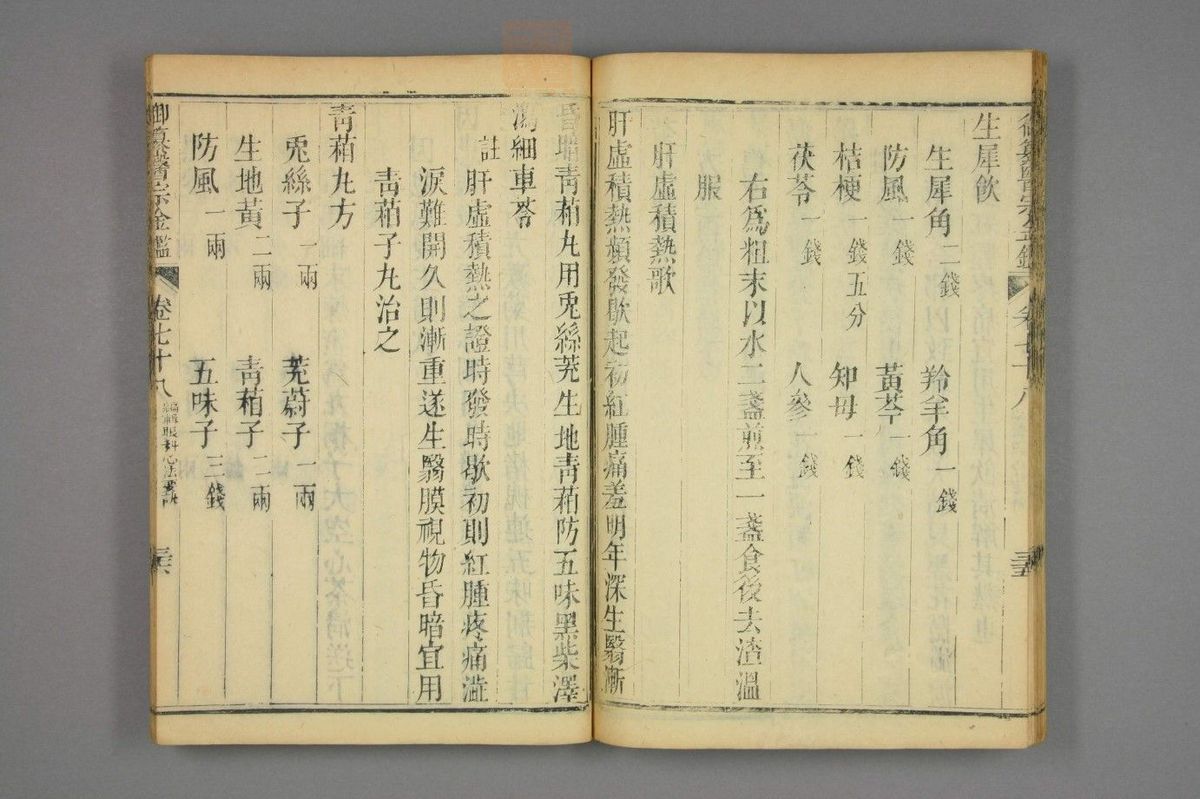 御纂醫宗金鑑 卷七十八 三五
生犀飲
生犀角二錢 羚羊角一錢
防風一錢 黃芩一錢
桔梗一錢五分 知母一錢
茯苓一錢 人參一錢
右爲粗末以水二盞煎至一盞食後去渣溫
服
肝虛積熱歌
肝虛積熱頻發歇起初紅腫痛羞明年深生翳漸
昏暗青葙丸用兎絲茺生地青葙防五味黑柴澤
瀉細車苓
註 肝虛積熱之證時發時歇初則紅腫疼痛澁
淚難開久則漸重遂生翳膜視物昏暗宜用
青葙子丸治之
青葙丸方
兎絲子一兩 茺蔚子一兩
生地黃二兩 青葙子二兩
防風一兩 五味子三錢
御纂醫宗金鑑 卷七十八 編輯眼科心法要訣 三六